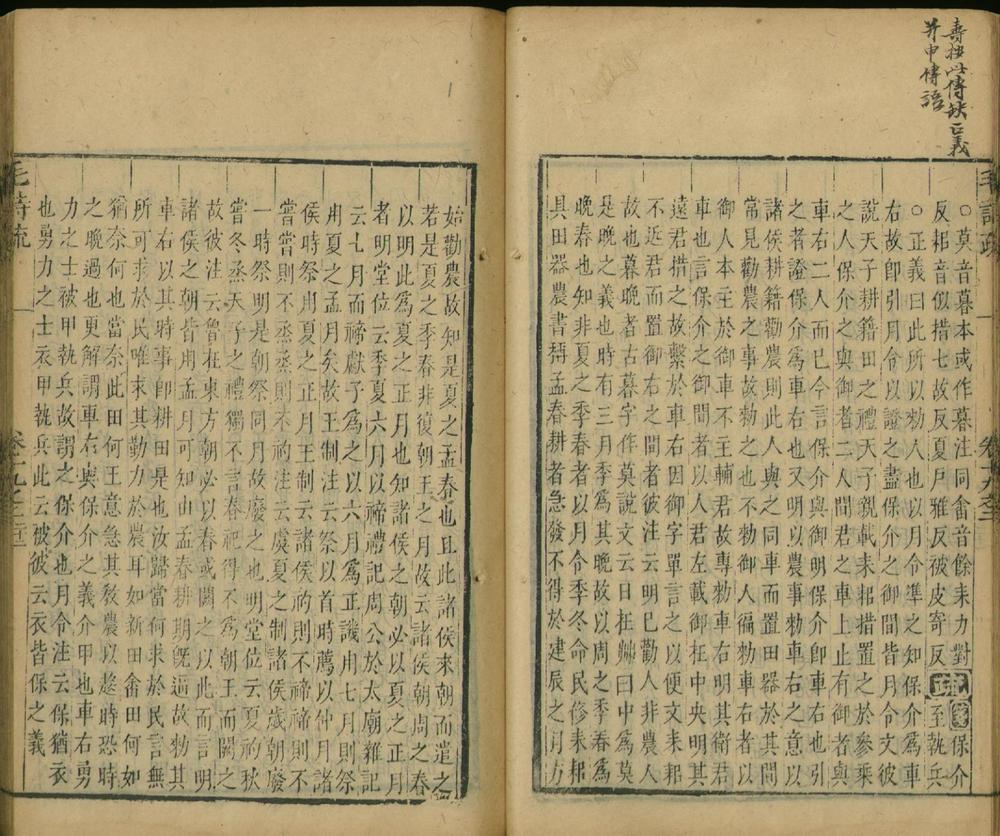 壽按此傳缺正義
並申傳語
毛詩疏
卷十九之二
○莫音暮本或作暮注同畬音餘耒力對
反耜音似措七故反夏戶雅反被皮寄反疏箋保介至執兵
○正義曰此所以勑人也以月令準之知保介為車
右故即引月令以證之盡保介之御間皆月令文彼
說天子耕籍田之禮天子親載耒耜措置之於參乘
之人保介之與御者二人間君之車上止有御者與
車右二人而已今言保介與御明保介即車右也引
之者證保介為車右也又明以農事勑車右之意以
諸侯耕籍勸農則此人與之同車而置田器於其間
常見勸農之事故勑之也不勑御人徧勑車右者以
御人本主於御車不主輔君故專勑車右明其衛君
車也言保介之御間者以人君左載御中央明其
遠君措之故繫於車右因御字單言之以便文耒耜
不近君而置御右之間者彼注云明已勸人非農人
故也暮晚者古暮字作莫說文云日在茻中為莫
是晚之義也時有三月季為其晚故以周之季春為
晚春也知非夏之季春者以月令季冬命民修耒耜
具田器農書稱孟春耕者急發不得於建辰之月方
始勸農故知是夏之孟春也且此諸侯來朝而遣之
若是夏之季春非復朝王之月故云諸侯朝周之春
以明此為夏之正月也知諸侯之朝必以夏之正月
者明堂位云季夏六月以禘禮記周公於太廟雜記
云七月而禘獻子為之以六月為正譏用七月則祭
用夏之孟月矣故王制注云虞夏之制諸侯歲朝廢
一時祭用夏之正月王制云諸侯礿則不禘禘則不
嘗嘗則不烝烝則不礿注云祭以首時薦以仲月諸
侯時祭明是朝祭同月故廢之也明堂位云夏礿秋
嘗冬烝天子之禮獨不言春祀得不為朝王而闕之
故彼注云魯在東方朝必以春或闕之以此而言明
諸侯之朝皆用孟月可知由孟春耕期旣逼故勑其
車右以其時事即耕田是也汝歸當何求於民言無
所可求於民唯求其勤力於農耳如新田畬田何如
猶奈何也當奈此田何王意急其教農以趁時恐時
之晚過也更解謂車右與保介之義介甲也車右勇
力之士被甲執兵故謂之保介也月令注云保猶衣
也勇力之士衣甲執兵此云被彼云衣皆保之義
毛詩疏
卷十九之二